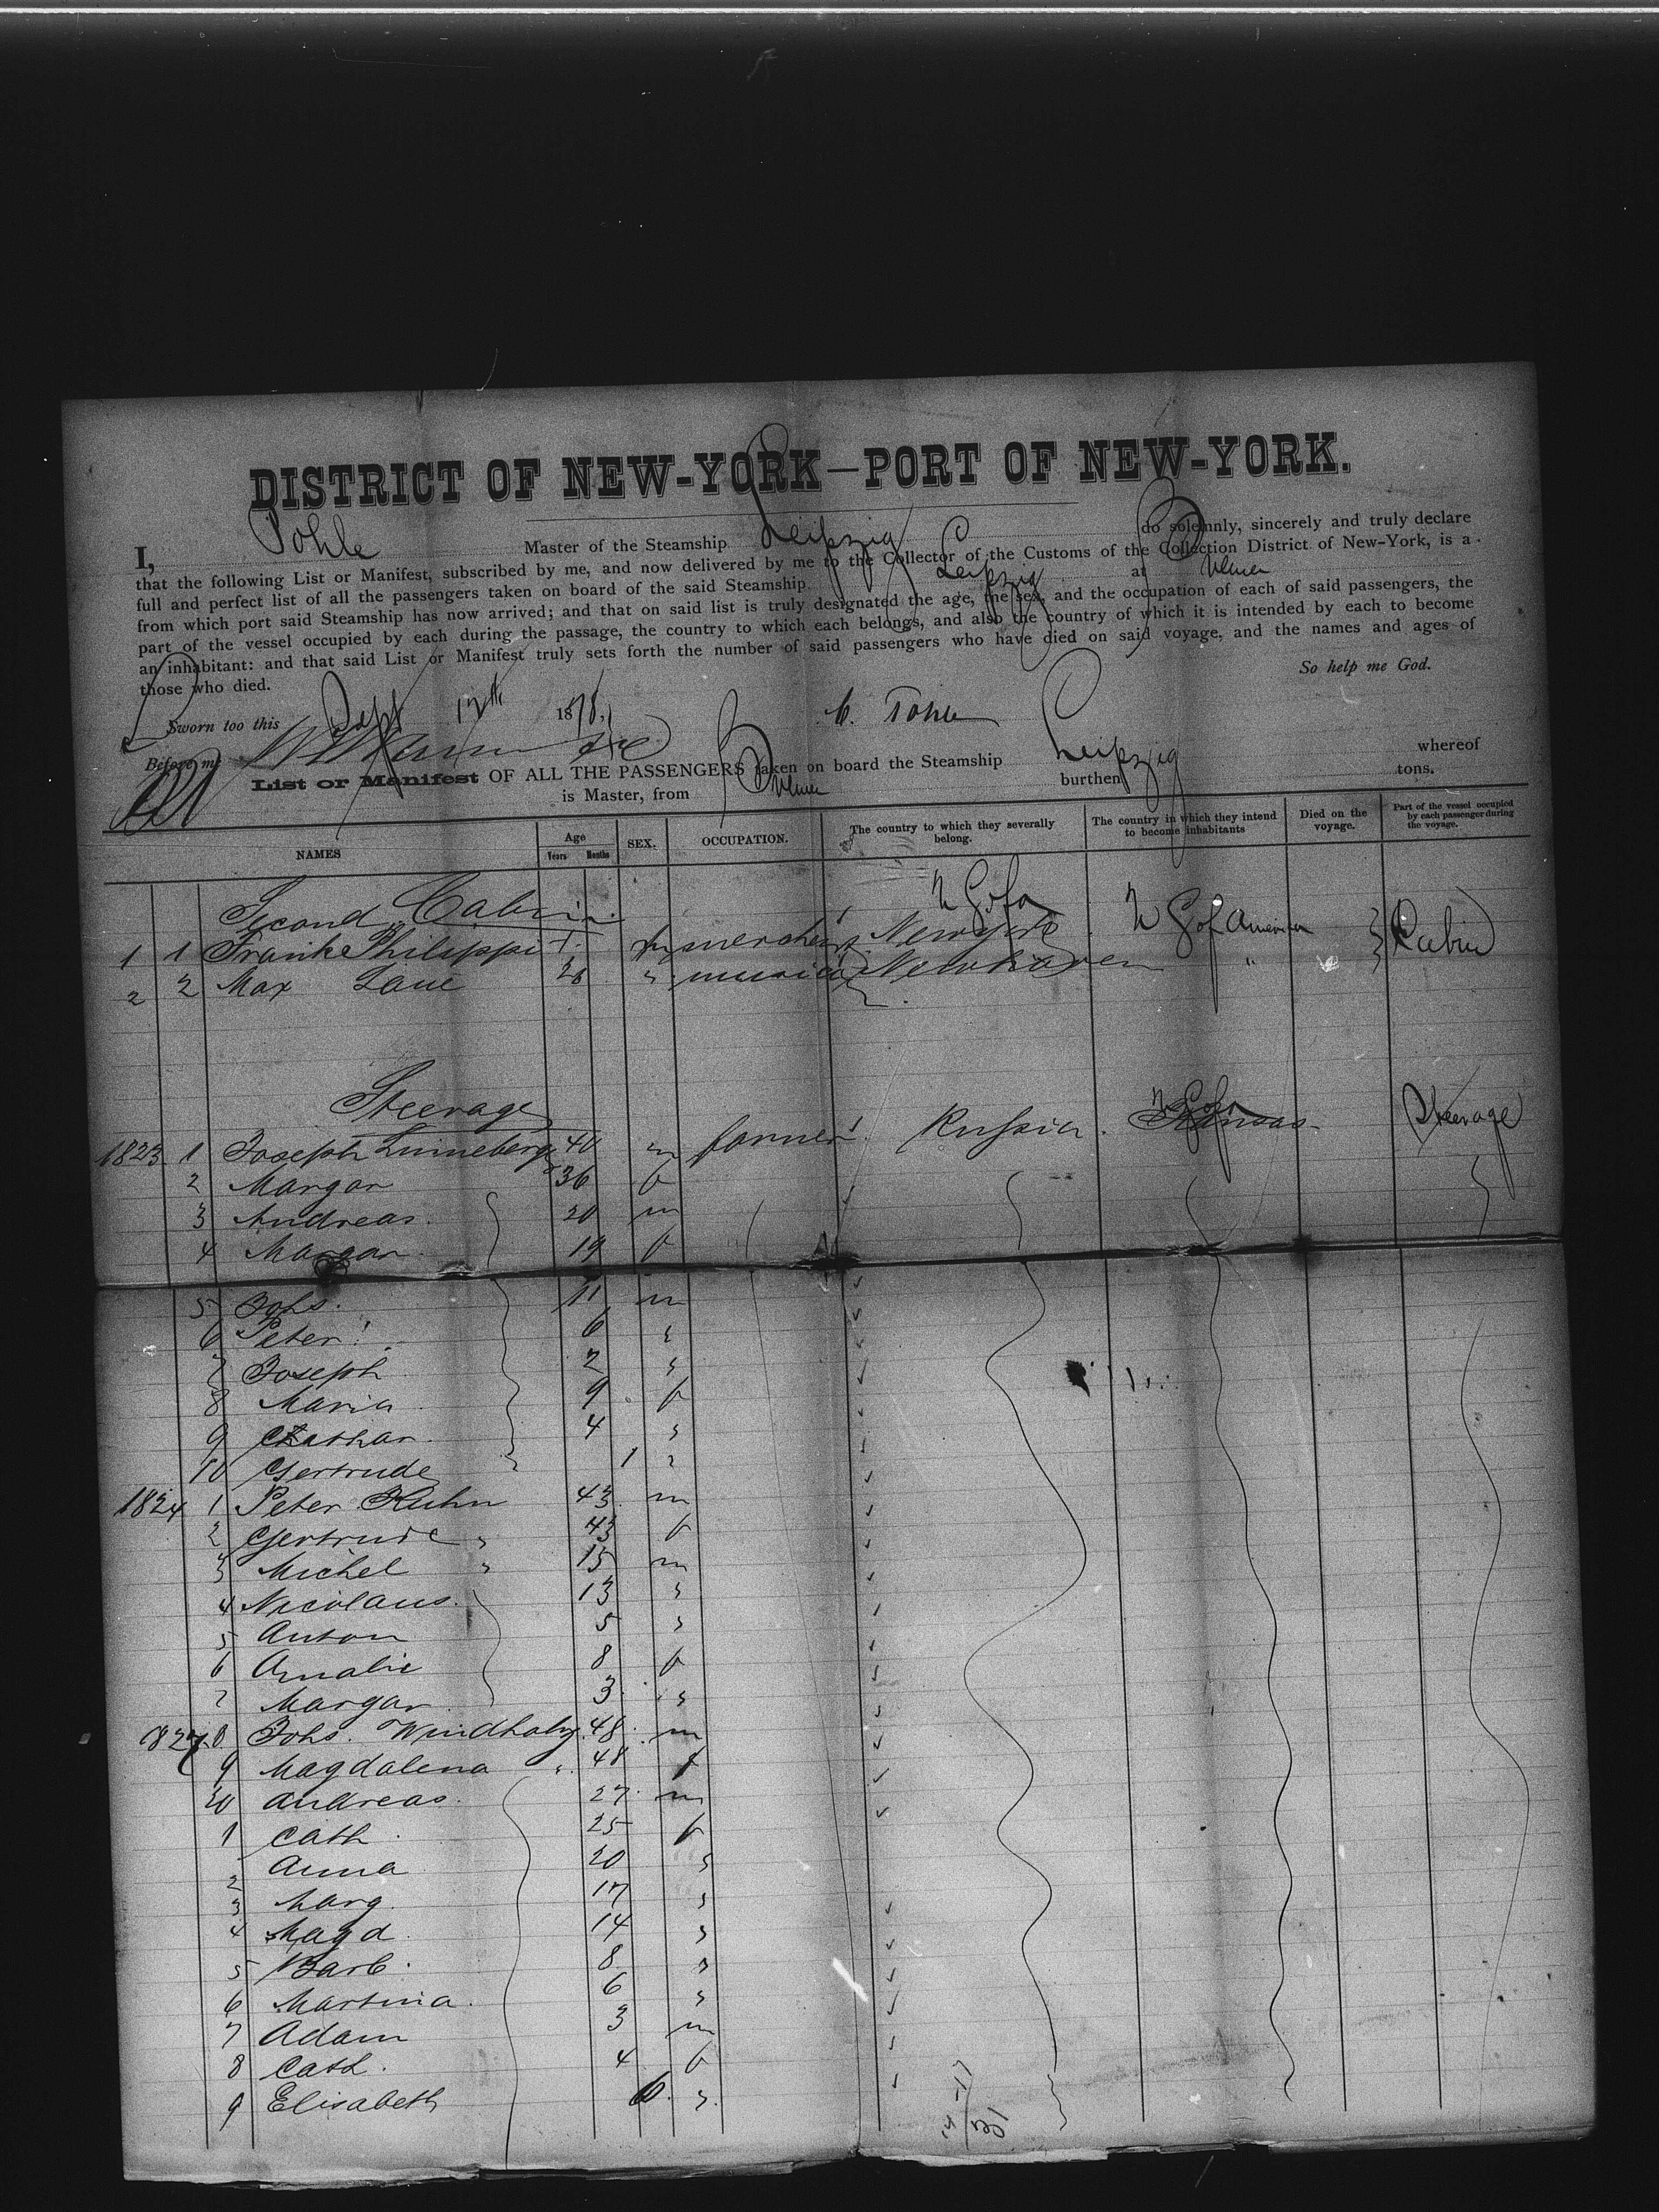 DISTRICT OF NEW-YORK—PORT OF NEW-YORK.
I, Pohle Master of the Steamship Leipzig do solemnly, sincerely and truly declare
that the following List or Manifest, subscribed by me, and now delivered by me to the Collector of the Customs of the Collection District of New-York, is a
full and perfect list of all the passengers taken on board of the said Steamship Leipzig at Bremen
from which port said Steamship has now arrived; and that on said list is truly designated the age, the sex, and the occupation of each of said passengers, the
part of the vessel occupied by each during the passage, the country to which each belongs, and also the country of which it is intended by each to become
an inhabitant: and that said List or Manifest truly sets forth the number of said passengers who have died on said voyage, and the names and ages of
those who died.
So help me God.
Sworn too this Sept 12th 1878, Pohle
Before me
List or Manifest OF ALL THE PASSENGERS taken on board the Steamship Leipzig whereof
is Master, from Bremen burthen tons.
NAMES Age Years Months SEX. OCCUPATION. The country to which they severally belong. The country in which they intend to become inhabitants Died on the voyage. Part of the vessel occupied by each passenger during the voyage.
Second Cabin.
1 1 Franke Philippi m merchant New York U S of America Cabin
2 2 Max 28 " Newhaven "
Steerage
1823 1 Joseph Linneberger 40 m farmer Russia. Kansas Steerage
2 Margar 36 f
3 Andreas. 20 m
4 Margar 19 f
5 Johs. 11 m
6 Peter 6 "
7 Joseph 2 "
8 Maria 9 f
9 Cathar. 4 "
10 Gertrude 1 "
1824 1 Peter Kuhn 43 m
2 Gertrude " 43 f
3 Michel " 15 m
4 Nicolaus. 13 "
5 Anton 5 "
6 Amalie 8 f
7 Margar 3 "
1827 8 Johs. Windholz 48 m
9 Magdalena " 48 f
20 Andreas. 27 m
1 Cath. 25 f
2 Anna 20 "
3 Marg. 17 "
4 Magd. 14 "
5 Barb. 8 "
6 Martina. 6 "
7 Adam 3 m
8 Cath. 4 f
9 Elisabeth "